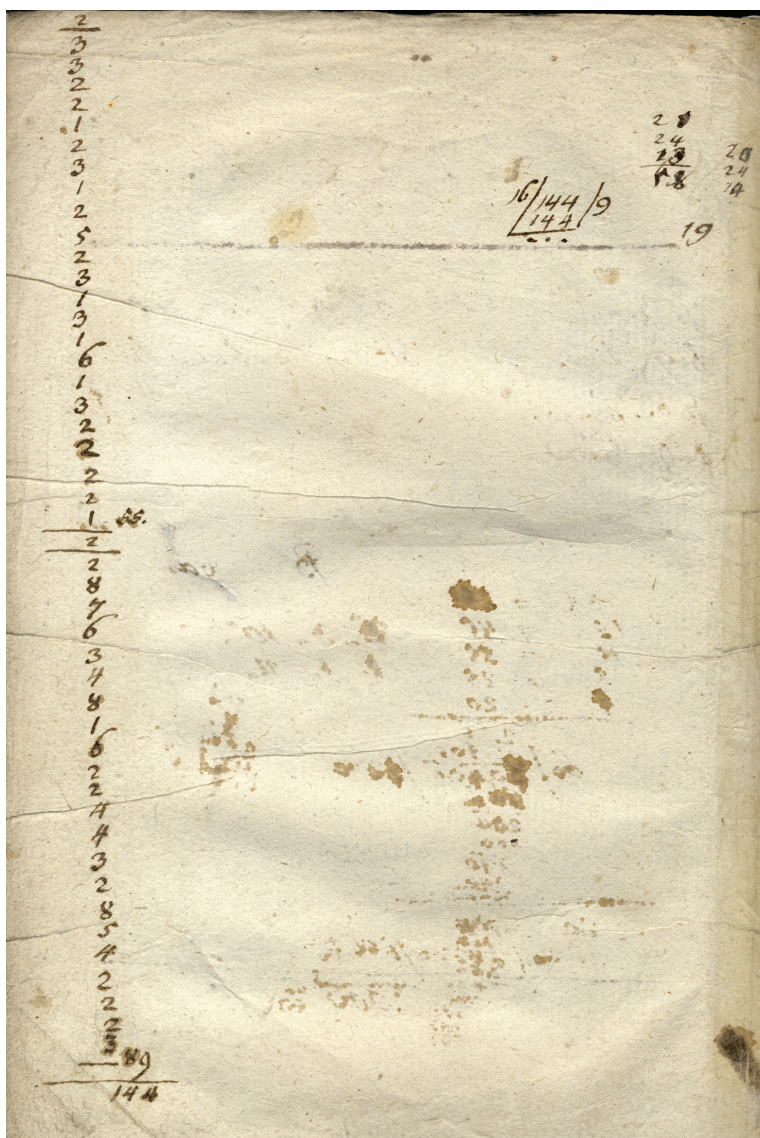 2
3
3
2
2
1
2
3
1
2
5
2
3
1
3
1
6
1
3
2
2
2
2
1 55.
2
2
8
7
6
3
4
8
1
6
2
2
4
4
3
2
8
5
4
2
2
2
89
144
16/144/9
144
...
20
24
13
58
20
24
14
19